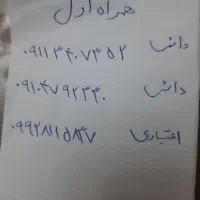 همراه اول
دائمی ۰۹۱۱۳۴۰۷۳۵۲
دائمی ۰۹۱۰۴۷۹۲۳۳۰
اعتباری ۰۹۹۲۸۱۱۵۸۳۷